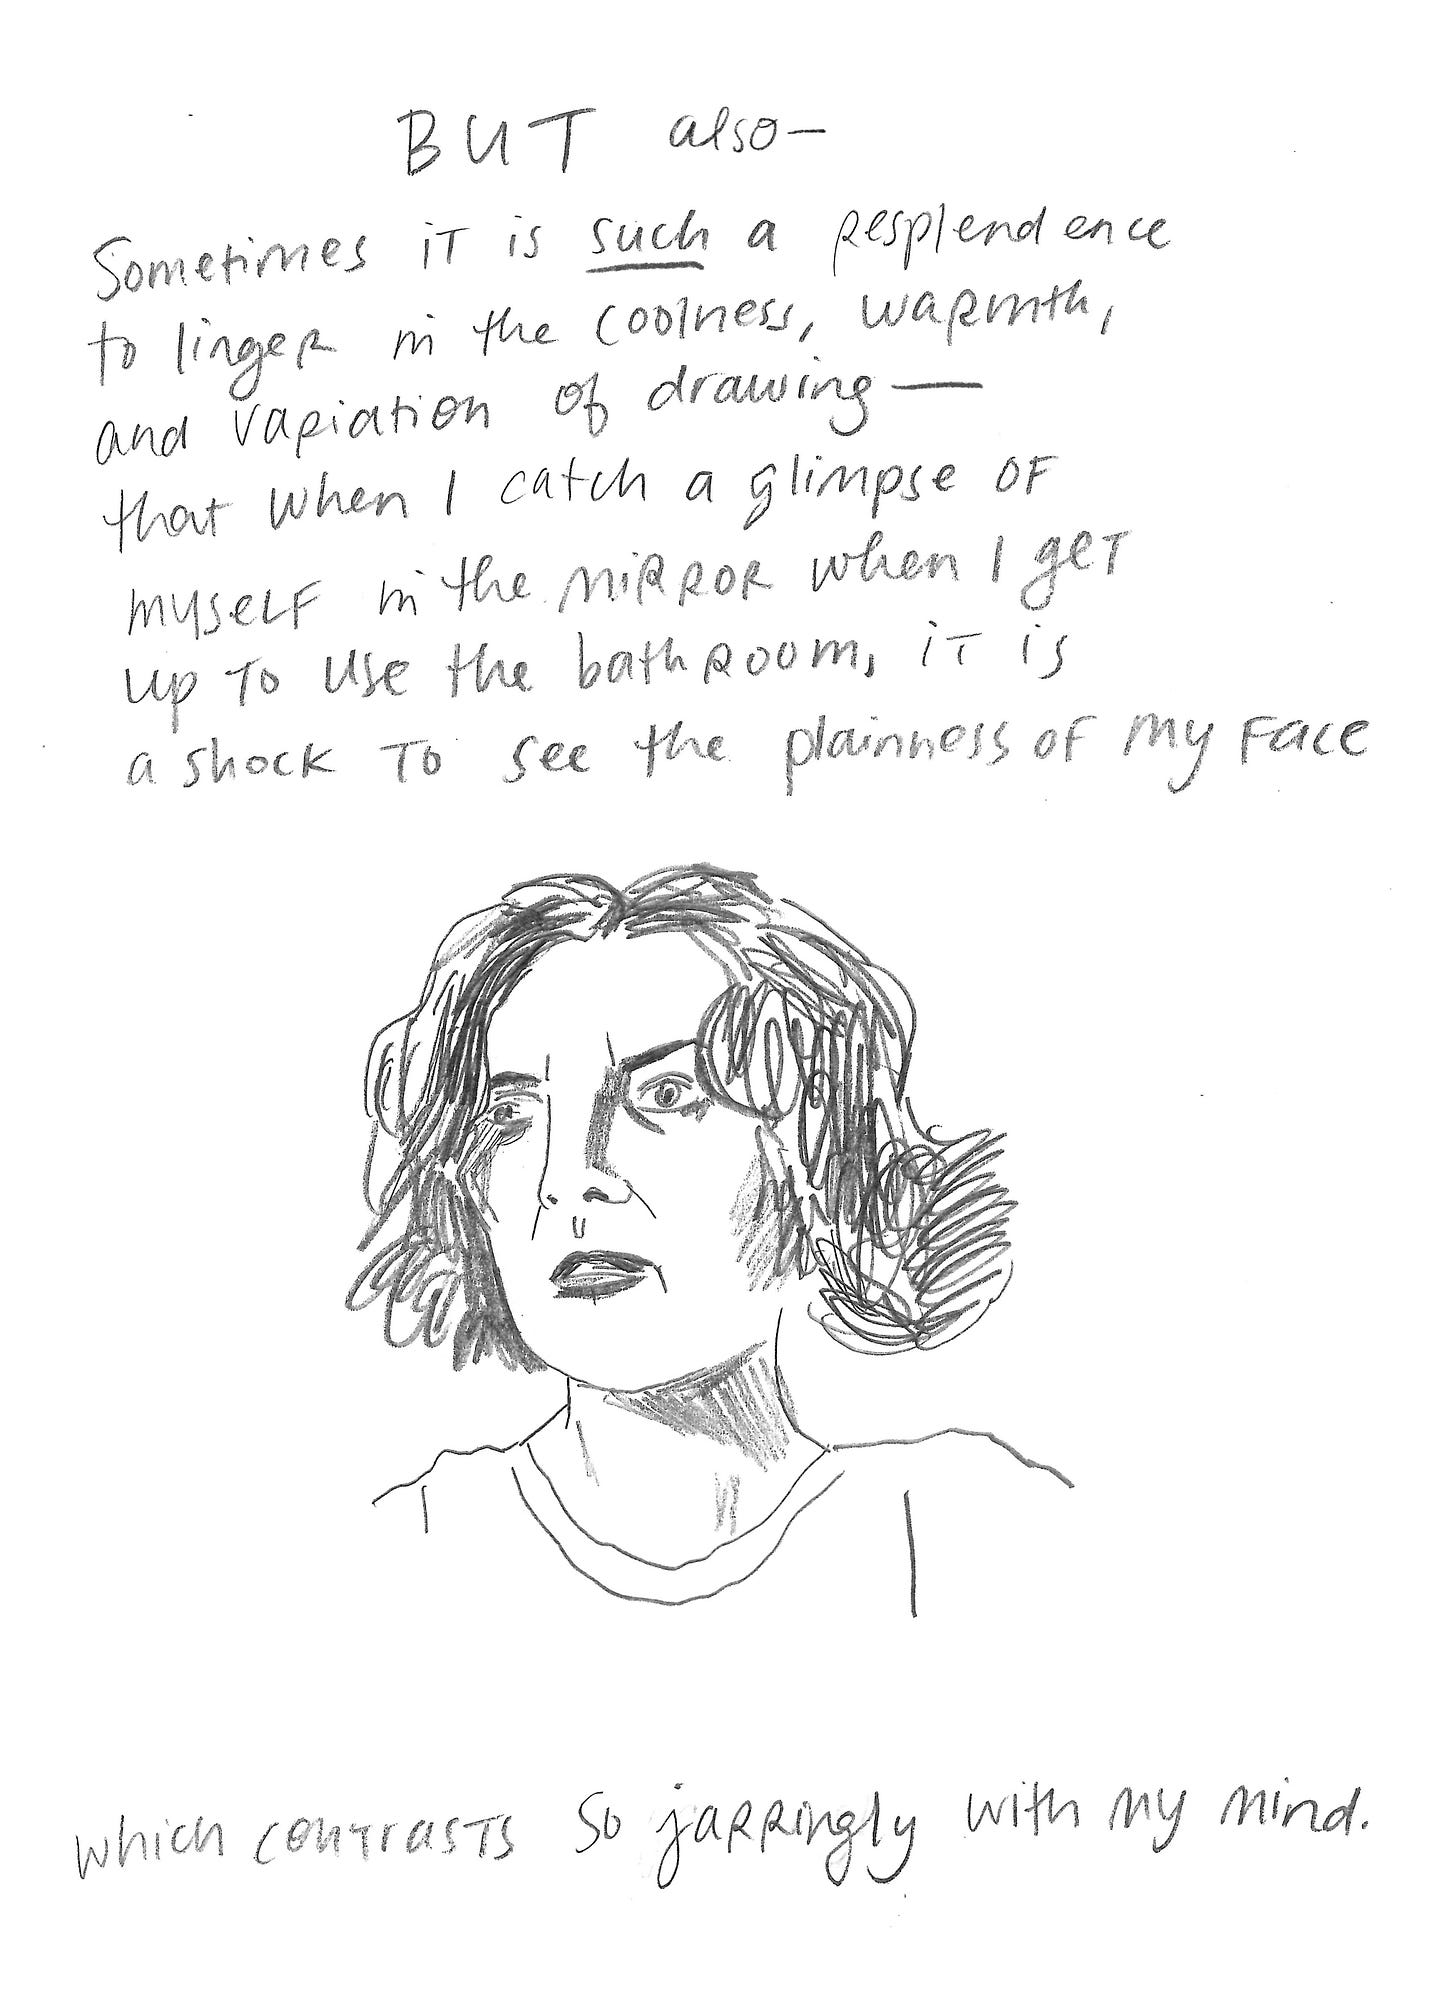 BUT also—
Sometimes it is such a resplendence
to linger in the coolness, warmth,
and variation of drawing—
that when I catch a glimpse of
myself in the mirror when I get
up to use the bathroom, it is
a shock to see the plainness of my face
which contrasts so jarringly with my mind.